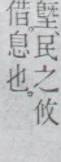 塈、民之攸
借息也。